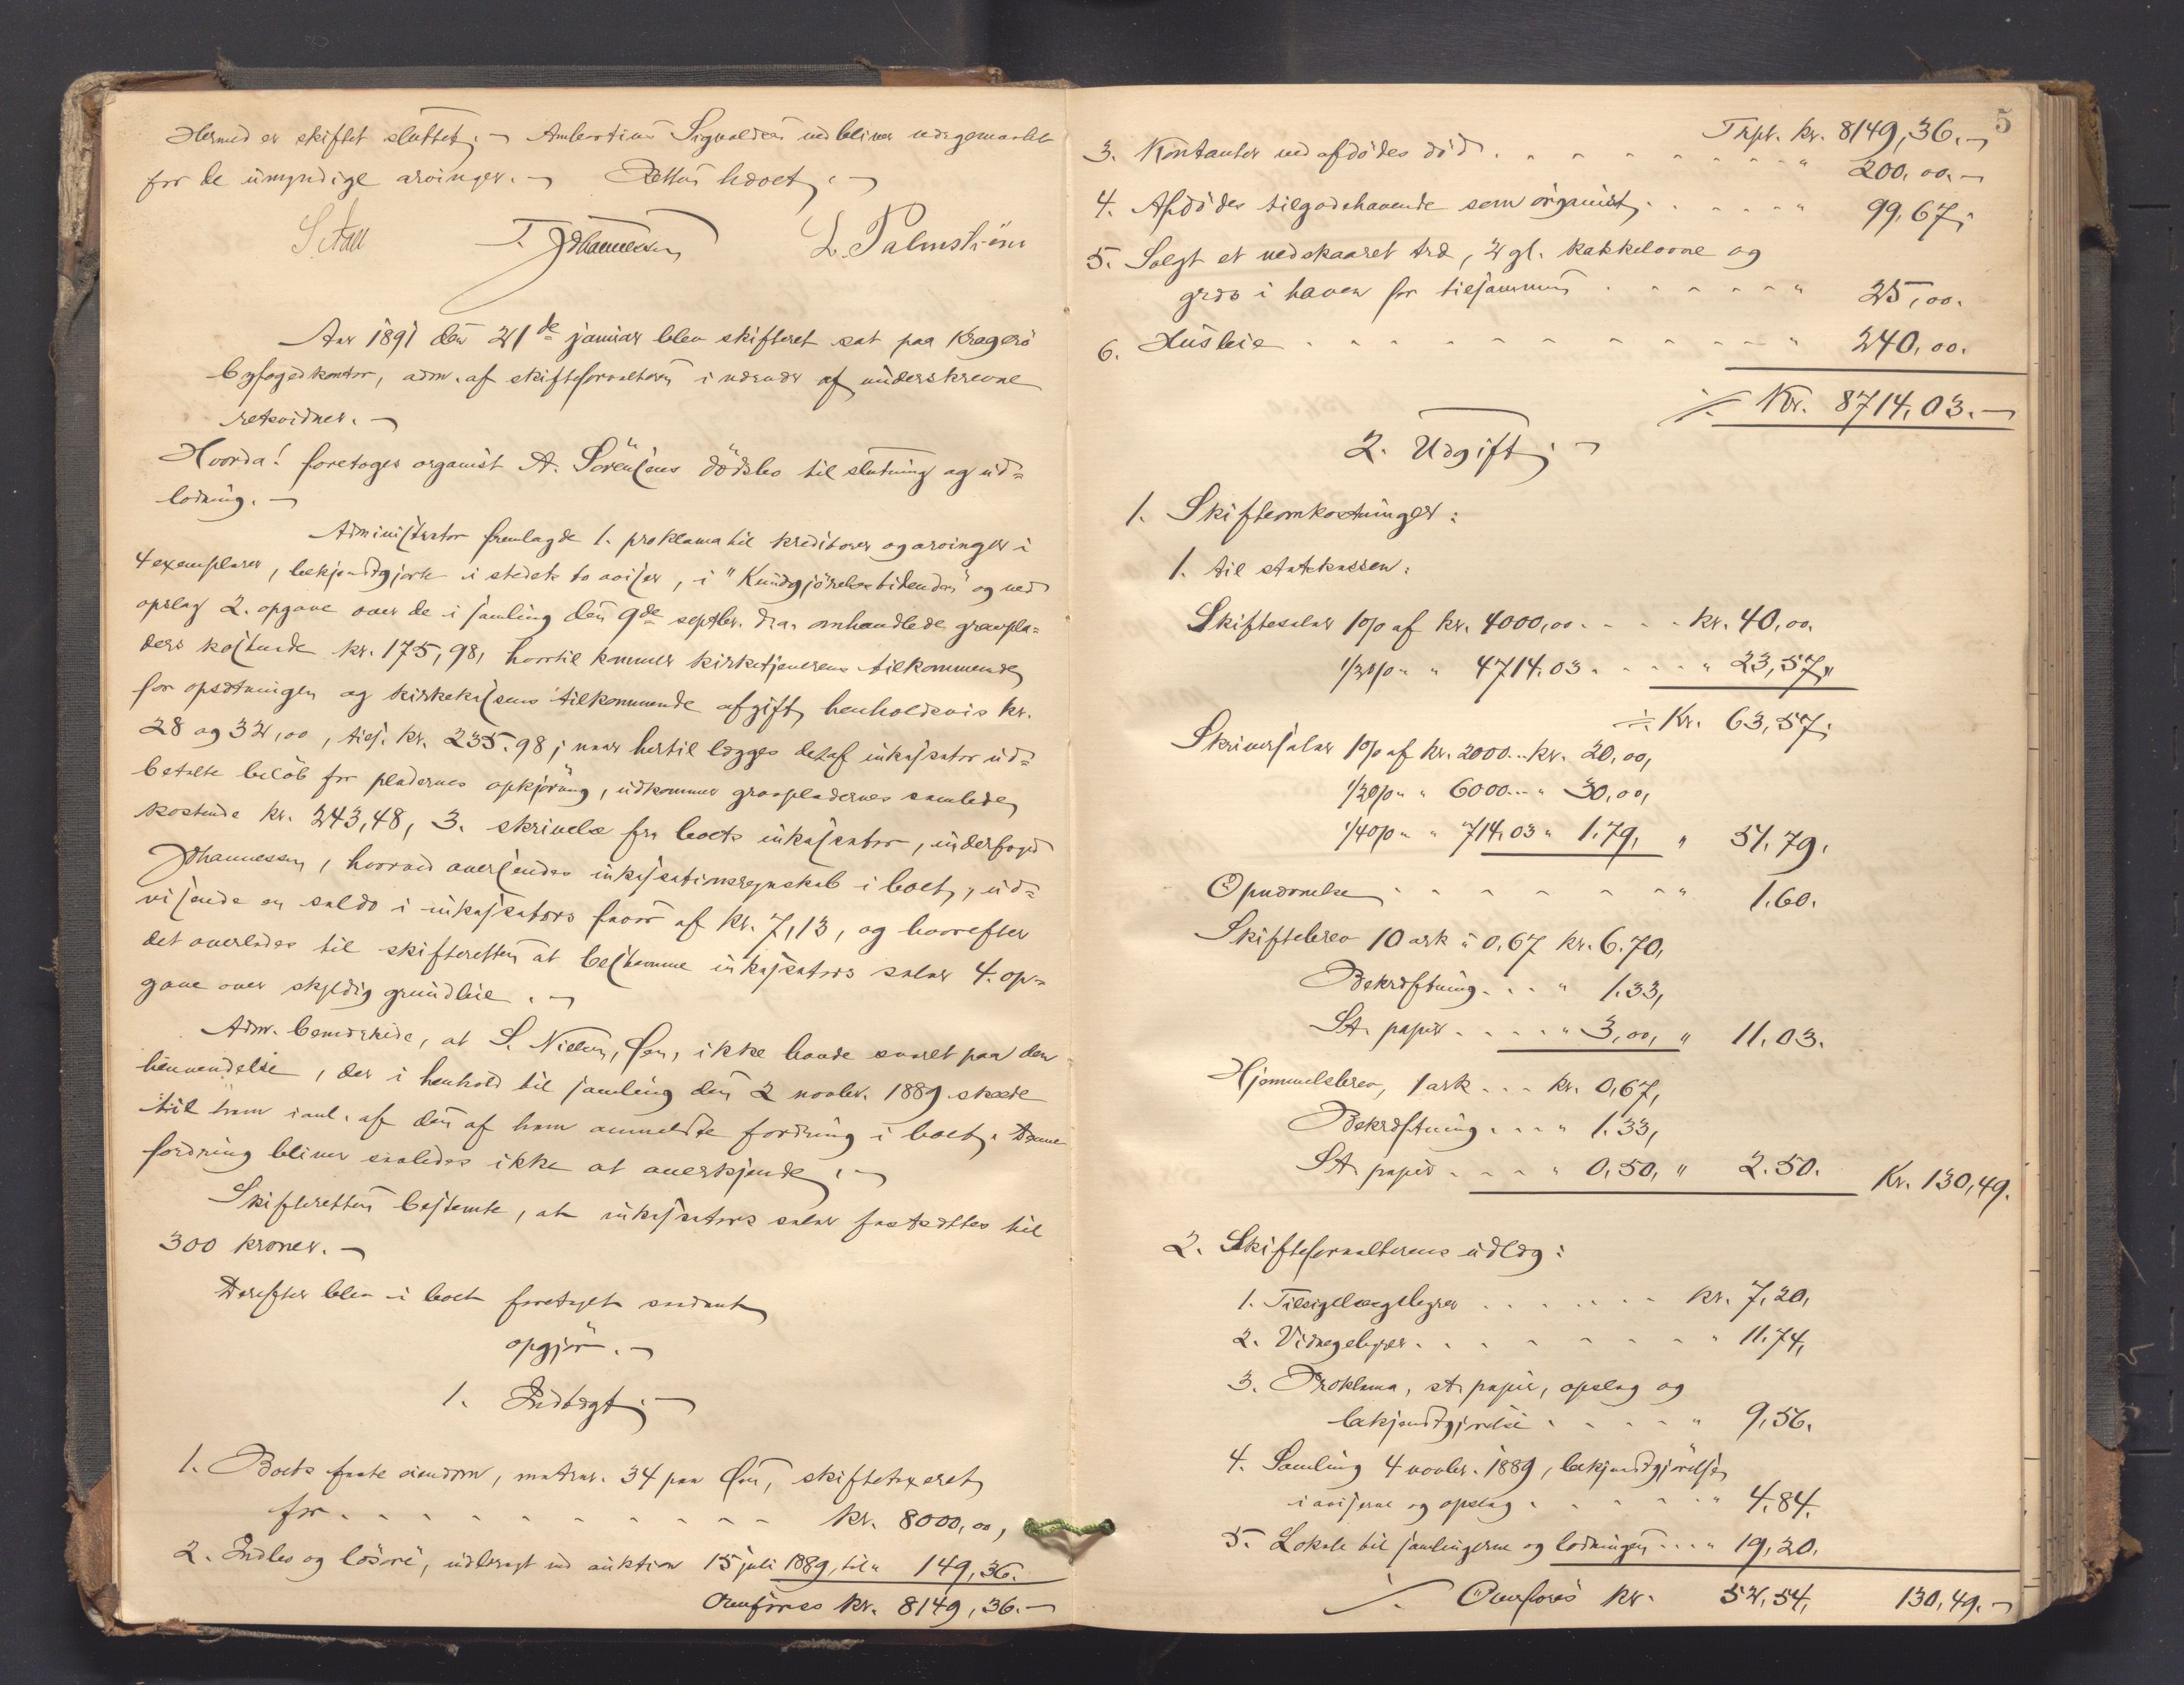 Hermed er skiftet sluttet. Ambortius Sigvaldsen vedbliver værgemaalet
for de umyndige arvinger. Retten hævet.
S. Aall T. Johannessen L. Palmstrøm
Aar 1891 den 21de januar blev skifteret sat paa Kragerö
byfogedkontor, adm. af skifteforvalteren i nærvær af underskrevne
retsvidner.
Hvorda! foretoges organist A. Sörensens dödsbo til slutning og ud=
lodning.
Administrator fremlagde 1. proklama til kreditorer og arvinger i
4 exemplarer, bekjendtgjort i stedets to aviser, i "Kundgjörelsestidenden" og ved
opslag 2. opgave over de i samling den 9de septbr. d.a. omhandlede gravpla=
ders kostende kr. 175,98, hvortil kommer kirketjenerens tilkommende
for opsætningen og kirkekassens tilkommende afgift, henholdsvis kr.
28 og 32,00, tils. kr. 235.98; naar hertil lægges det af inkassator ud=
betalte belöb for pladernes opkjöring, udkommer gravpladernes samlede
kostende kr. 243,48, 3. skrivelse fra boets inkassator, underfoged
Johannessen, hvorved oversendes inkassationsregnskab i boet, ud=
visende en saldo i inkassators favör af kr. 7,13, og hvorefter
det overlades til skifteretten at bestemme inkassators salær 4. op=
gave over skyldig grundleie.
Adm. bemærkede, at S. Nielsen, Öen, ikke havde svaret paa den
henvendelse, der i henhold til samling den 2 novbr. 1889 skede
til ham i anl. af den af ham anmeldte fordring i boet. Denne
fordring bliver saaledes ikke at anerkjende.
Skifteretten bestemte, at inkassators salær fastsættes til
300 kroner.
Derefter blev i boet foretaget saadant
opgjör.
1. Indtægt.
1. Boets faste eiendom, matrnr. 34 paa Öen, skiftetaxeret
for . . . . kr. 8000,00,
2. Indbo og lösöre, udbragt ved auktion 15 juli 1889, til " 149,36.
Overföres kr. 8149,36.
5
Trpt. kr. 8149,36.
3. Kontanter ved afdödes död . . . . " 200,00.
4. Afdödes tilgodehavende som organist . . . . " 99,67;
5. Solgt et nedskaaret træ, 2 gl. kakkelovne og
græs i haven for tilsammen . . . . " 25,00.
6. Husleie . . . . " 240,00.
÷ Kr. 8714,03.
2. Udgift.
1. Skifteomkostninger:
1. til statskassen:
Skiftesalær 1% af kr. 4000,00 . . . . kr. 40,00.
1/2% " " 4714.03 . . . . " 23,57,
÷ Kr. 63,57;
Skriversalær 1% af kr. 2000 . . kr. 20,00,
1/2% " " 6000 . . " 30,00,
1/4% " " 714,03 " 1.79, " 51,79.
Opnævnelse . . . . " 1.60.
Skiftebrev 10 ark à 0,67 kr. 6.70,
Bekræftning . . . " 1.33,
St. papir . . . . " 3,00, " 11.03.
Hjemmelsbrev, 1 ark . . . kr. 0,67,
Bekræftning . . . " 1.33,
St. papir . . . . " 0,50, " 2.50. Kr. 130,49.
2. Skifteforvalterens udlæg:
1. Tilsigelsesgebyrer . . . . kr. 7,20,
2. Vidnegebyrer . . . . " 11.74,
3. Proklama, st. papir, opslag og
bekjendtgjörelse . . . . " 9,56.
4. Samling 4 novbr. 1889, bekjendtgjörelse
i aviserne og opslag . . . . " 4.84.
5. Lokale til samlingerne og lodningen . . . " 19,20.
÷ Overföres kr. 52,54, 130,49.